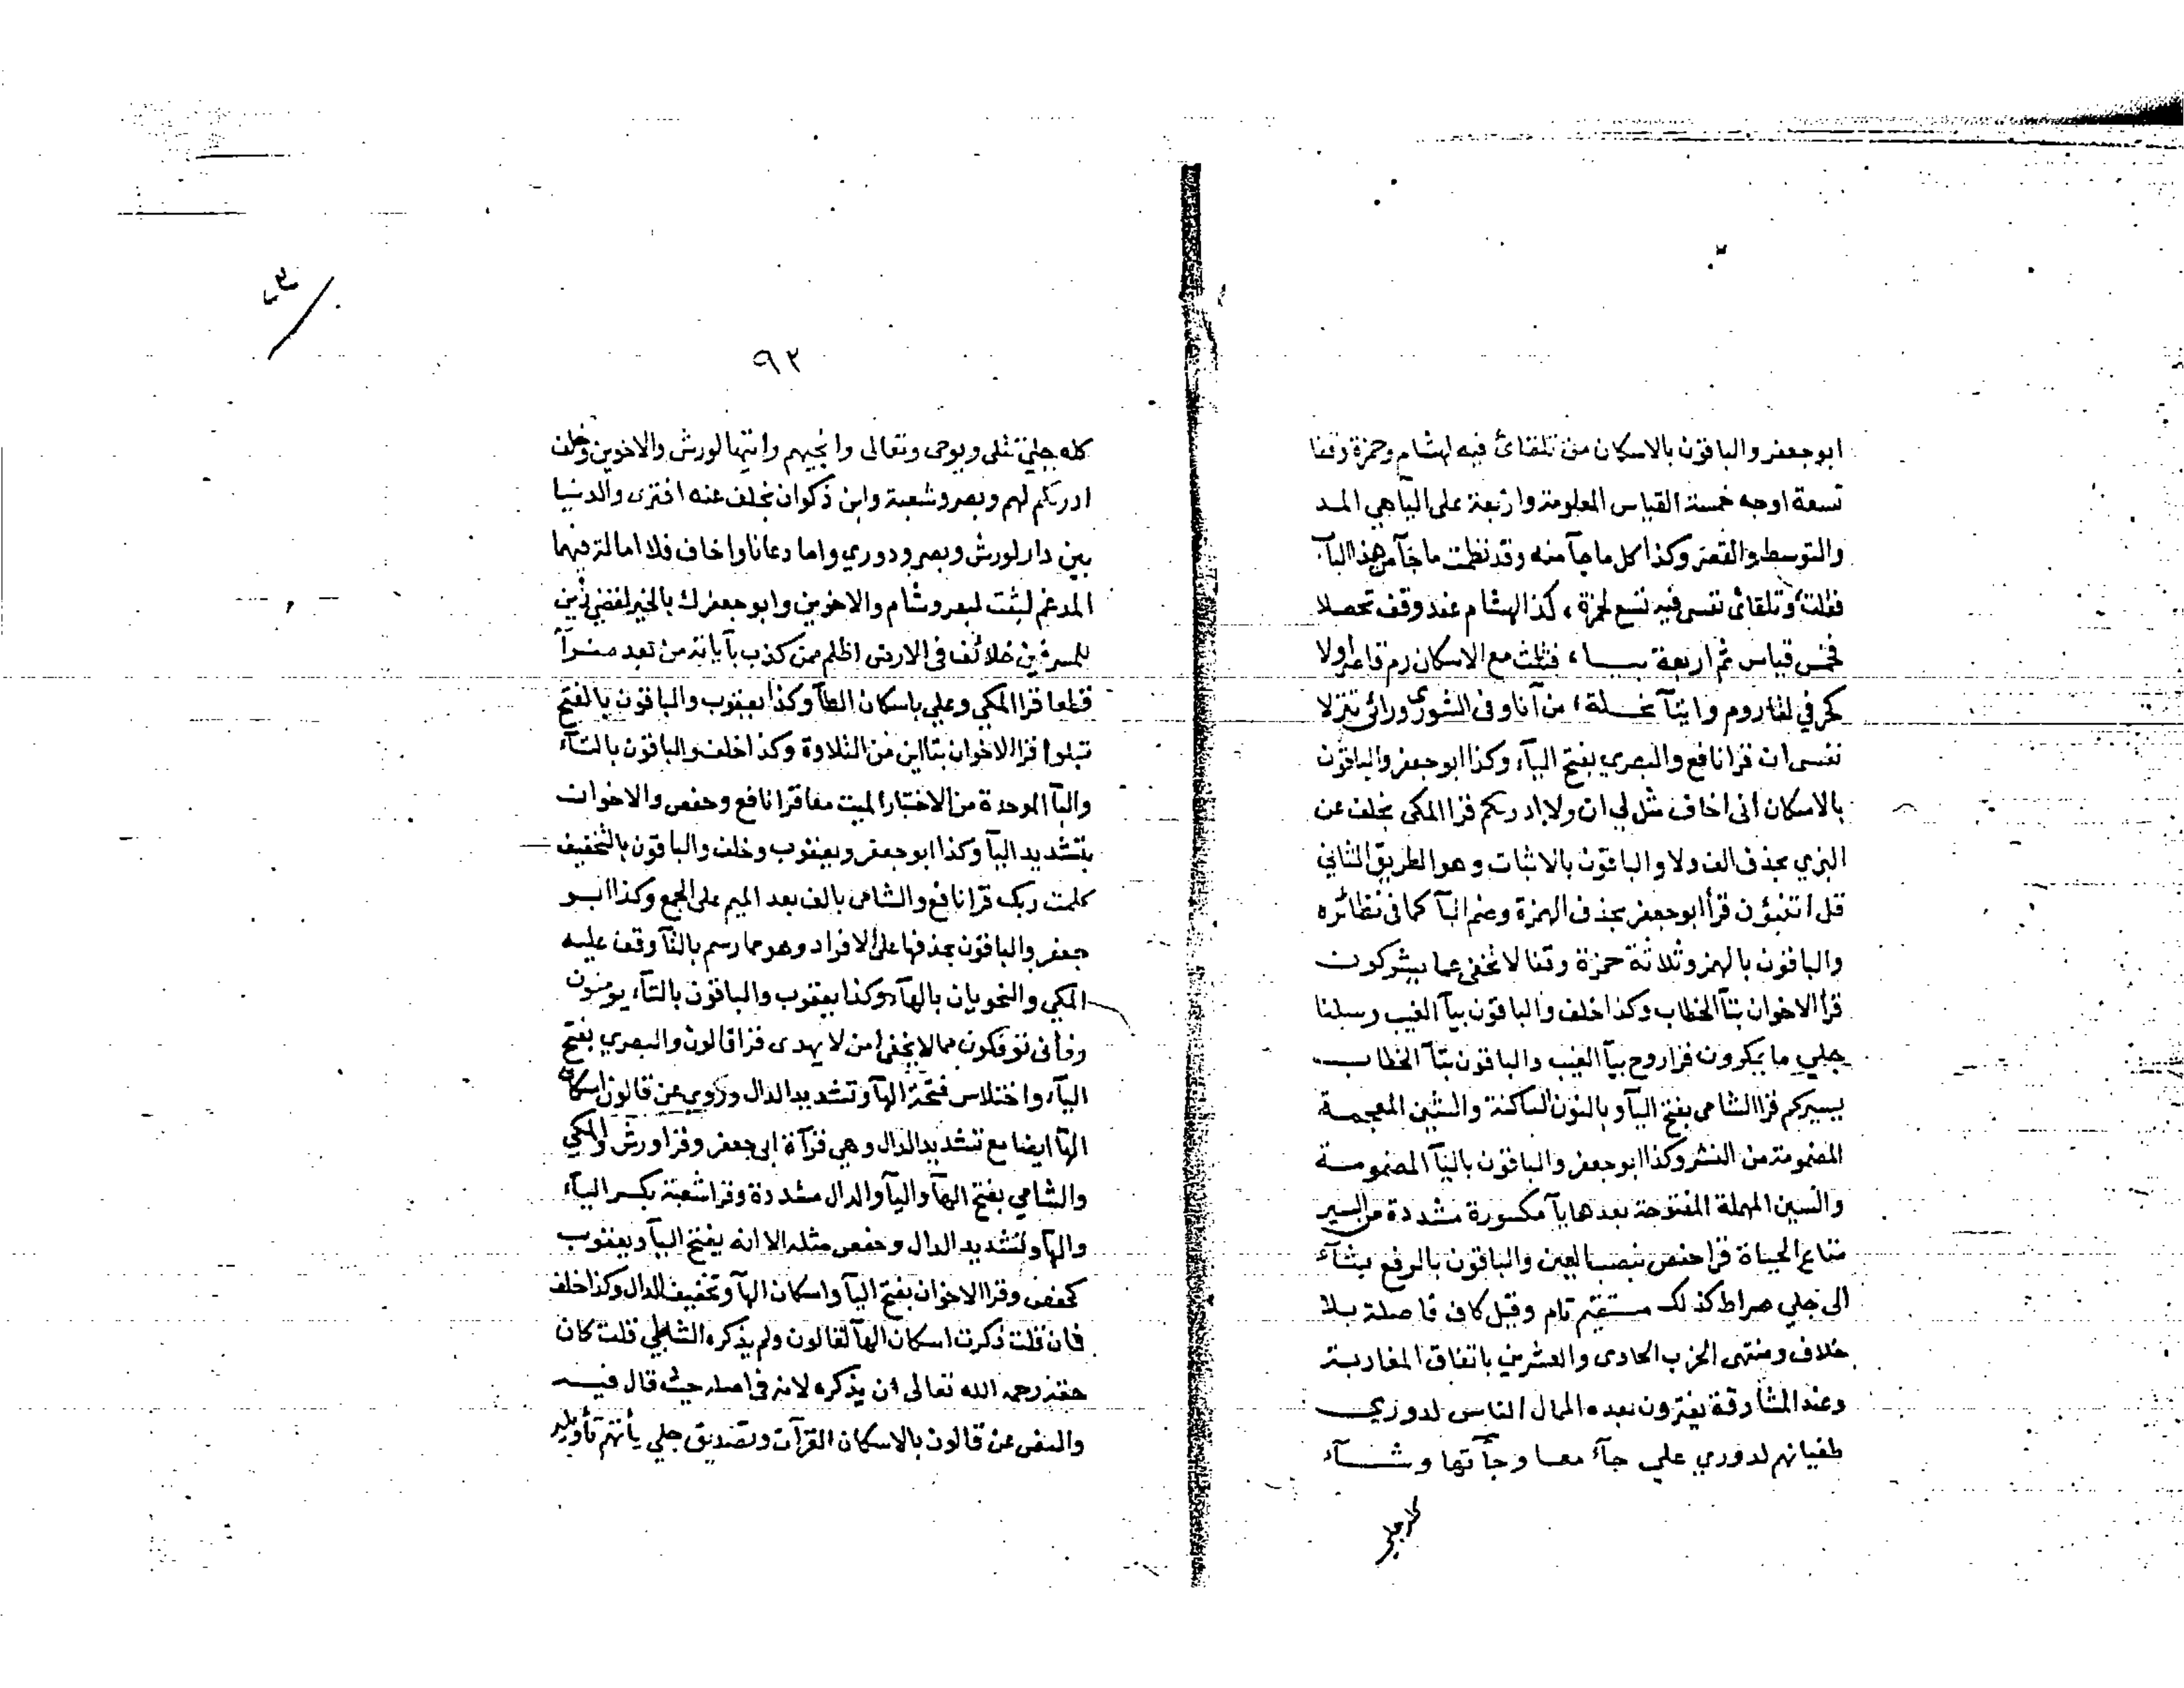 ابو جعفر والباقون بالاسكان من تلقائ فيه لهشام وحمزة وقفا
تسعة اوجه خمسة القياس المعلومة واربعة على اليا هي المد
والتوسط والقصر وكذا كل ما جآ منه وقد نظمت ما جآ من هذا الباب
فقلت وتلقائ نفسى فيه تسع لحمزة ، كذا لهشام عند وقف تحصلا
فخمس قياس ثم اربعة بيا ، فثلث مع الاسكان رم قاعه اولا
كحرفي لقا روم وايتآ نحلة ، من آنا وفى الشورى ورائ تنزلا
نفسى ان قرا نافع والبصري بفتح اليآء وكذا ابو جعفر والباقون
بالاسكان انى اخاف مثل لي ان ولا ادريكم قرا المكى بخلف عن
البزي بحذف الف ولا والباقون بالاثبات وهو الطريق الثاني
قل أتنبؤن قرأ ابو جعفر بحذف الهمزة وضم البآ كما فى نظائره
والباقون بالهمز وثلاثة حمزة وقفا لا تخفى عما يشركون
قرأ الاخوان بتآ الخطاب وكذا خلف والباقون بيآ الغيب رسلنا
جلي ما يمكرون قرا روح بيآ الغيب والباقون بتآ الخطاب
يسيركم قرا الشامى بفتح اليآ وبالنون الساكنة والشين المعجمة
المضمومة من النشر وكذا ابو جعفر والباقون باليآ المضمومة
والسين المهملة المفتوحة بعدها يآ مكسورة مشددة من السير
متاع الحياة قرا حفص بنصب العين والباقون بالرفع يشآء
الى جلي صراط كذلك مستقيم تام وقيل كاف فاصلة بلا
خلاف ومنتهى الحزب الحادى والعشرين باتفاق المغاربة
وعند المشارقة يفترون بعده الممال الناس لدوري
طغيانهم لدوري علي جآء معا وجآتها وشآء
٩٢
كله جلي تتلى ويوحى وتعالى وانجيهم واتيها لورش والاخوين وخلف
ادريكم لهم وبصر وشعبة وابن ذكوان بخلف عنه افترى والدنيا
بين دار لورش وبصر ودوري واما دعانا واخاف فلا امالة فيهما
المدغم لبثت لبصر وشام والاخوين وابو جعفر ك بالخير لقضي زين
للمسرفين خلائف فى الارض اظلم ممن كذب بآياته من بعد ضرآ
قطعا قرا المكي وعلي باسكان الطآ وكذا يعقوب والباقون بالفتح
تبلوا قرا الاخوان بتاين من التلاوة وكذا خلف والباقون بالتآء
والبآ الموحدة من الاختبار الميت معا قرا نافع وحفص والاخوان
بتشديد اليآ وكذا ابو جعفر ويعقوب وخلف والباقون بالتخفيف
كلمت ربك قرا نافع والشامى بالف بعد الميم على الجمع وكذا ابو
جعفر والباقون بحذفها على الافراد وهو مما رسم بالتآ وقف عليه
المكي والنحويان بالهآء وكذا يعقوب والباقون بالتآء يومنون
وفأنى توفكون مما لا يخفى امن لا يهدى قرا قالون والبصري بفتح
اليآء واختلاس فتحة الهآ وتشديد الدال وروي عن قالون اسكان
الهآ ايضا مع تشديد الدال وهي قرآة ابى جعفر وقرا ورش والمكي
والشامي بفتح الهآ واليآ والدال مشددة وقرا شعبة بكسر اليآء
والهآ وتشديد الدال وحفص مثله الا انه يفتح اليآ ويعقوب
كحفص وقرا الاخوان بفتح اليآ واسكان الهآ وتخفيف الدال وكذا خلف
فان قلت ذكرت اسكان الهآ لقالون ولم يذكره الشاطبي قلت كان
حقه رحمه الله تعالى ان يذكره لانه فى اصله حيث قال فيه
والنص عن قالون بالاسكان القرآن وتصديق جلي يأتهم تأويله